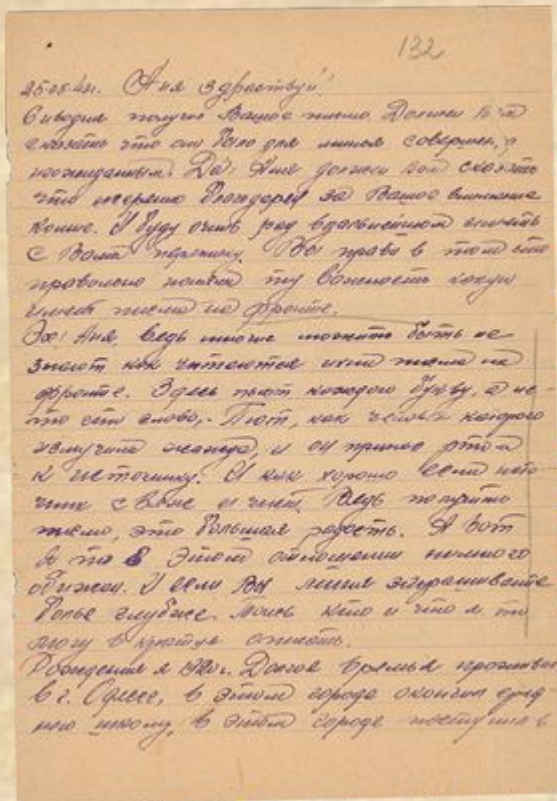 132
25-05-42г. Аня здраствуй!
Сиводня получил Ваше письмо. Должен Вам
сказать что оно было для меня совершен
неожиданным. Да! Аня должен вам сказать
что искренно благодарен за Ваше внимание
ко мне. И буду очень рад в дальнейшем иметь
с Вами переписку. Вы правы в том что
правильно поняли ту важность какую
имеют письма на фронте.
Эх! Аня, ведь многие может быть не
знают как читаются эти письма на
фронте. Здесь пьют каждую букву, а не
то что слово. Пьют, как человек которого
измучила жажда, и он припал ртом
к источнику. И как хорошо если источ
ник свеж и чист. Ведь получить
письмо, это большая радость. А вот
я то в этом отношении немного
обижен. И если Вы меня спрашиваете
более глубже. Мось кто и что я то
могу в кратце описать.
Рождения я 1920г. Долгое время проживал
в г. Одессе, в этом городе окончил сред
нею школу, в этом городе поступил в